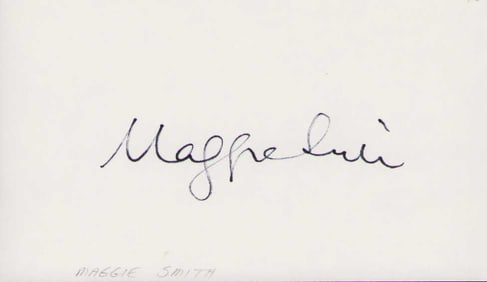 Maggie Smith
MAGGIE SMITH